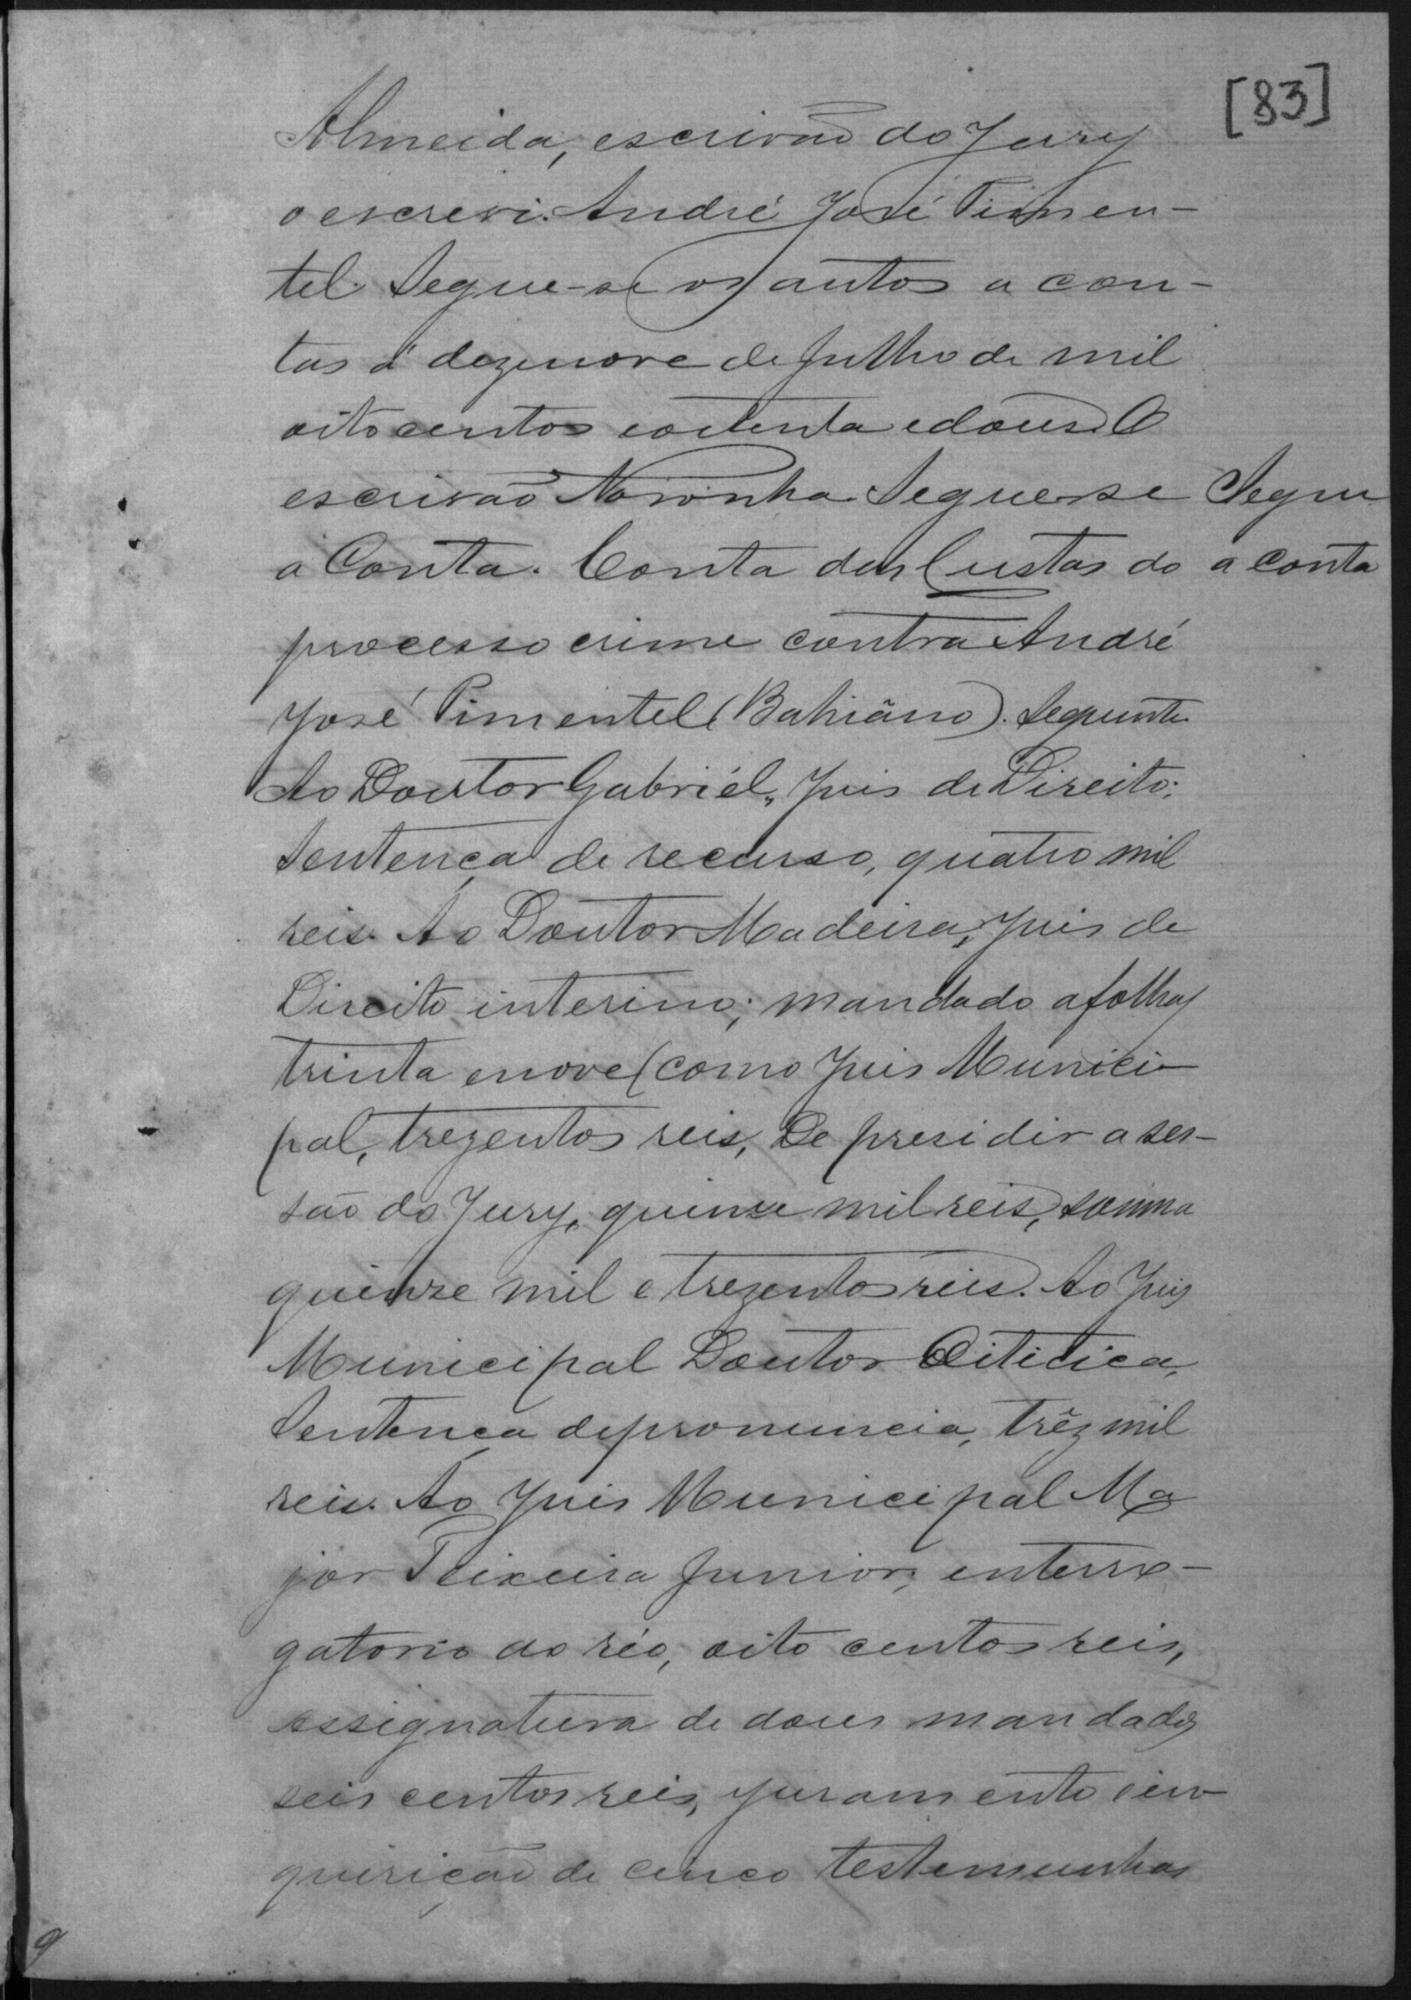 [83]
Almeida, escrivão do Jury
o escrevi. André José Pimen-
tel. Segue-se os autos a con-
tas á dezenove de Julho de mil
oitocentos eoitenta edous. O
escrivão Noronha. Segue-se
a Conta. Conta das Custas do
Segue
a conta
processo crime contra André
José Pimentel (Bahiâno). Seguinte
Ao Doutor Gabriél, Juis de Direito;
Sentença de recurso, quatro mil
reis. Ao Doutor Madeira, Juis de
Direito interino; mandado a folhas
trinta enove (como Juis Munici-
pal, trezentos reis, De presidir a ses-
são do Jury, quinze mil reis, somma
quinze mil e trezentos reis. Ao Juis
Municipal Doutor Oiticica,
Sentença depronuncia, trêz mil
reis. Ao Juis Municipal Ma
jor Teixeira Junior; enterro-
gatorio ao réo, oito centos reis,
assignatura de dous mandados
seis centos reis, juramento e in-
quirição de cinco testemunhas